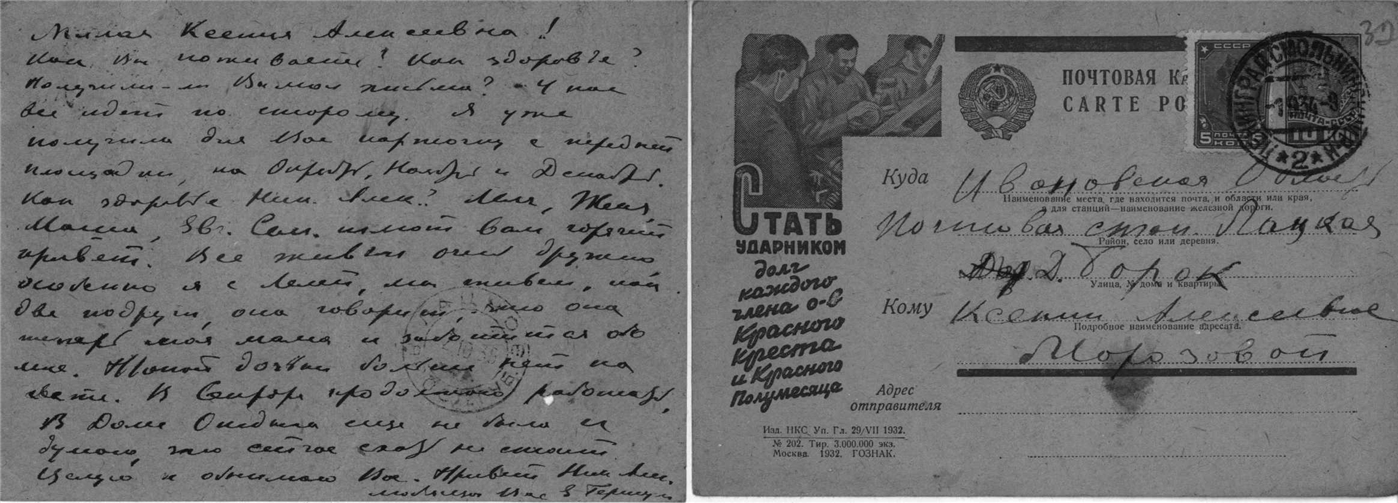 Милая Ксения Алексеевна!
Как Вы поживаете? Как здоровье?
Получили-ли Вы мои письма? У нас
все идет по старому. Я уже
получила для Вас карточку с передней
площадки, на Октябрь, Ноябрь и Декабрь.
Как здоровье Ник. Алек.? Женя,
Маша, Евг. Сам. шлют Вам горячий
привет. Все живем очень дружно
особенно я с Лелей, мы живем, как
две подруги, она говорит, что она
теперь моя мама и заботится обо
мне. Такой дочки больше нет на
свете. В продолжаю работать,
В Доме Отдыха еще не была и
думаю, что сейчас ехать не стоит
Целую и обнимаю Вас. Привет Ник. Ал.
любящая Вас
СТАТЬ
УДАРНИКОМ
долг
каждого
члена о-в
Красного
Креста
и Красного
Полумесяца
Изд. НКС. Уп. Гл. 29/VII 1932.
№ 202. Тир. 3.000.000 экз.
Москва. 1932. ГОЗНАК.
ПОЧТОВАЯ КА
CARTE PO
СССР
5 ПОЧТА
КОП
2
Куда Ивановская Область
Наименование места, где находится почта, и области или края,
а для станций—наименование железной дороги.
Почтовая стан. Лацкая
Район, село или деревня.
Д. Борок
Улица, № дома и квартиры
Кому Ксении Алексеевне
Подробное наименование адресата.
Морозовой
Адрес
отправителя